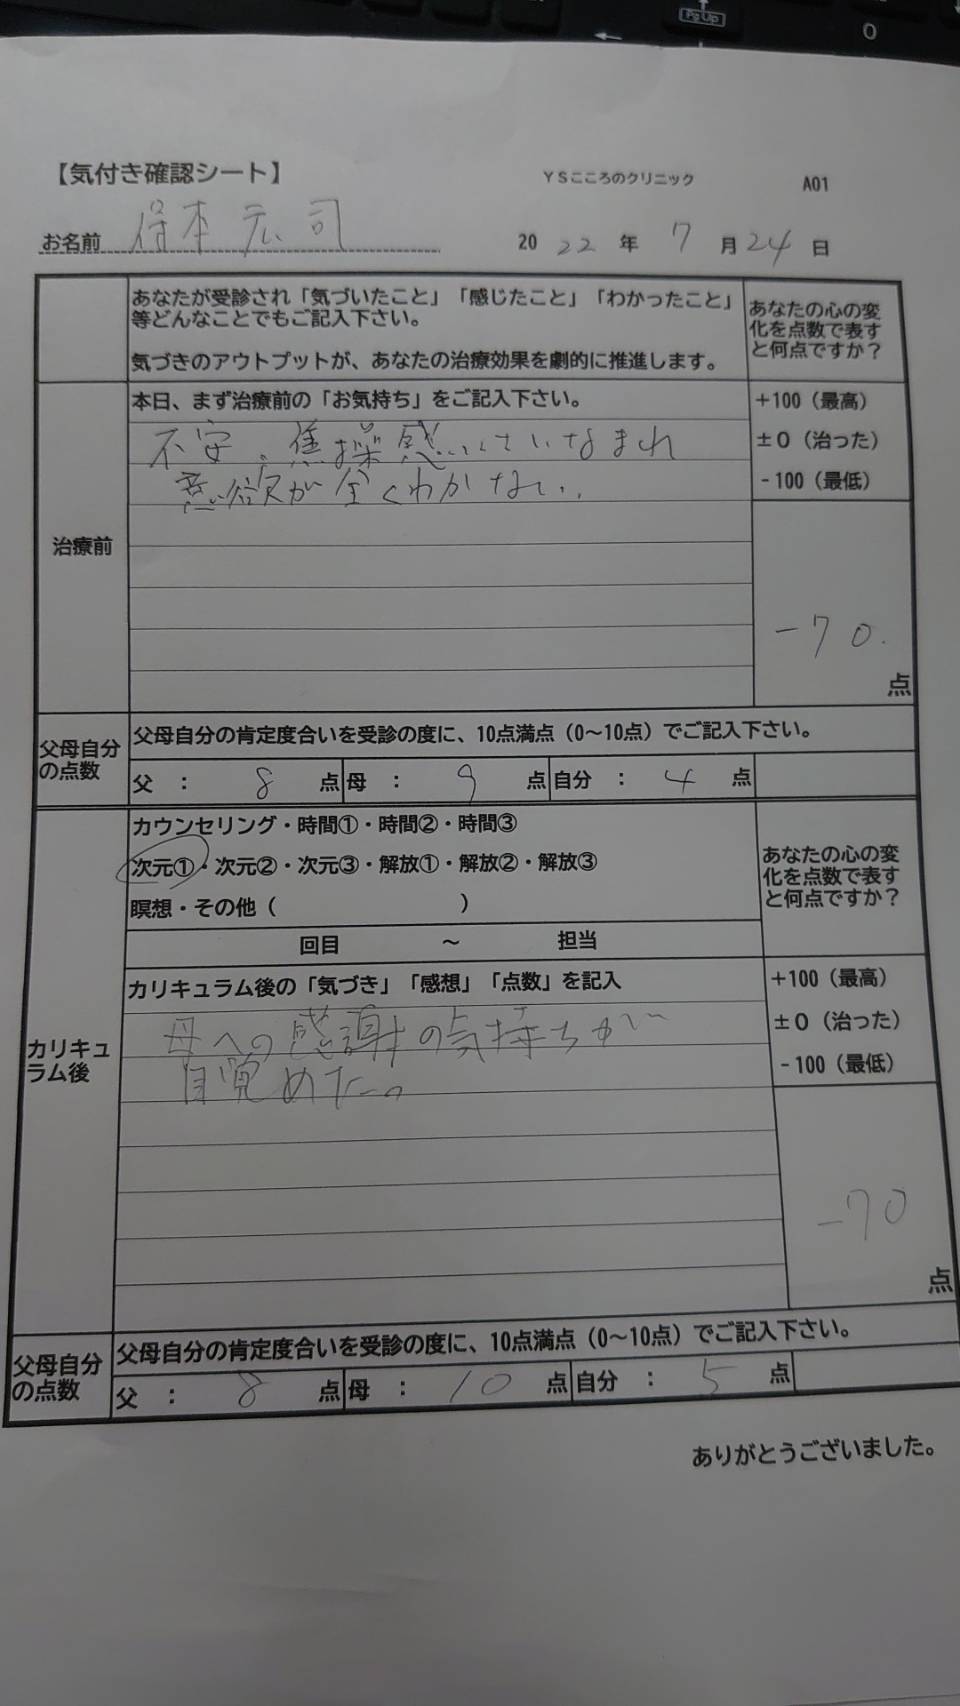 Pg Up
0
【気付き確認シート】 YSこころのクリニック A01
お名前 保本 広司 2022年 7月24日
あなたが受診され「気づいたこと」「感じたこと」「わかったこと」
等どんなことでもご記入下さい。
気づきのアウトプットが、あなたの治療効果を劇的に推進します。
あなたの心の変
化を点数で表す
と何点ですか？
治療前
本日、まず治療前の「お気持ち」をご記入下さい。
不安、焦操感にさいなまれ
意欲が全くわかない。
+100（最高）
±0（治った）
-100（最低）
-70.
点
父母自分
の点数
父母自分の肯定度合いを受診の度に、10点満点（0～10点）でご記入下さい。
父 ： 8 点 母 ： 9 点 自分 ： 4 点
カリキュ
ラム後
カウンセリング・時間①・時間②・時間③
次元①・次元②・次元③・解放①・解放②・解放③
瞑想・その他（ ）
回目 ～ 担当
あなたの心の変
化を点数で表す
と何点ですか？
カリキュラム後の「気づき」「感想」「点数」を記入
母への感謝の気持ちが
目覚めた。
+100（最高）
±0（治った）
-100（最低）
-70
点
父母自分
の点数
父母自分の肯定度合いを受診の度に、10点満点（0～10点）でご記入下さい。
父 ： 8 点 母 ： 10 点 自分 ： 5 点
ありがとうございました。